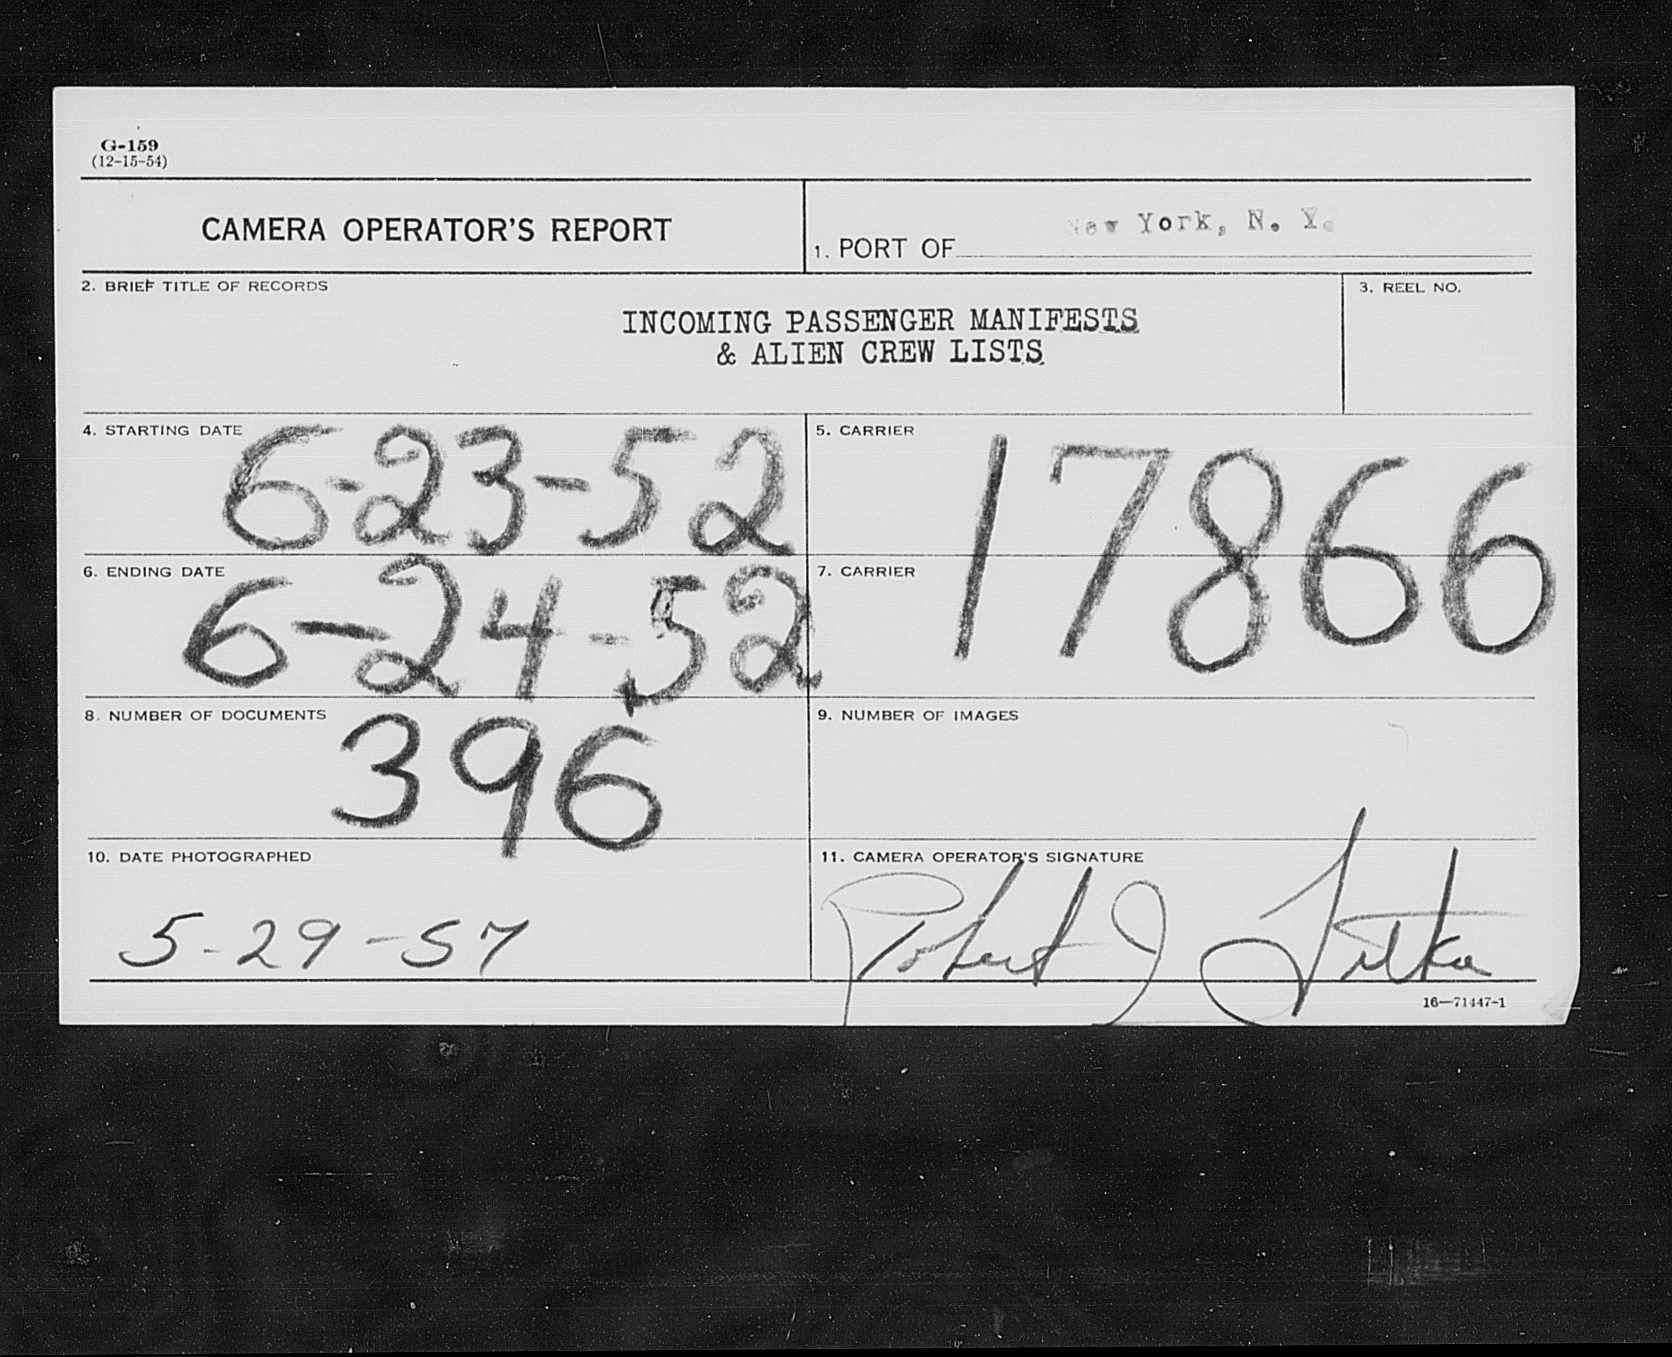 G-159
(12-15-54)
CAMERA OPERATOR'S REPORT
1. PORT OF New York, N. Y.
2. BRIEF TITLE OF RECORDS
INCOMING PASSENGER MANIFESTS
& ALIEN CREW LISTS
3. REEL NO.
4. STARTING DATE 6-23-52
5. CARRIER
17866
6. ENDING DATE 6-24-52
7. CARRIER
8. NUMBER OF DOCUMENTS 396
9. NUMBER OF IMAGES
10. DATE PHOTOGRAPHED
5-29-57
11. CAMERA OPERATOR'S SIGNATURE
Robert J
16—71447-1